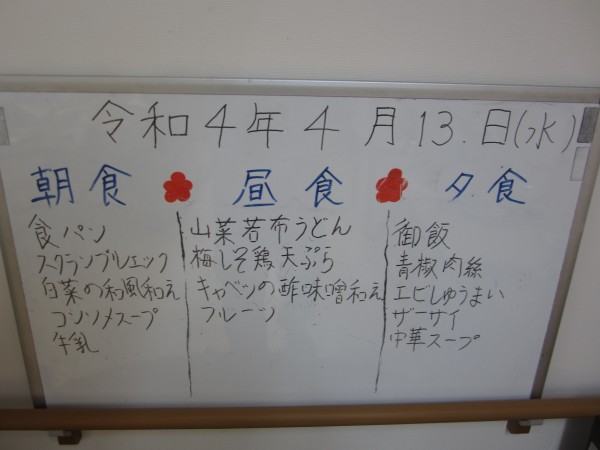 令和4年4月13.日(水)
朝食 昼食 夕食
食パン
スクランブルエック
白菜の和風和え
コンソメスープ
牛乳
山菜若布うどん
梅しそ鶏天ぷら
キャベツの酢味噌和え
フルーツ
御飯
青椒肉絲
エビしゅうまい
ザーサイ
中華スープ